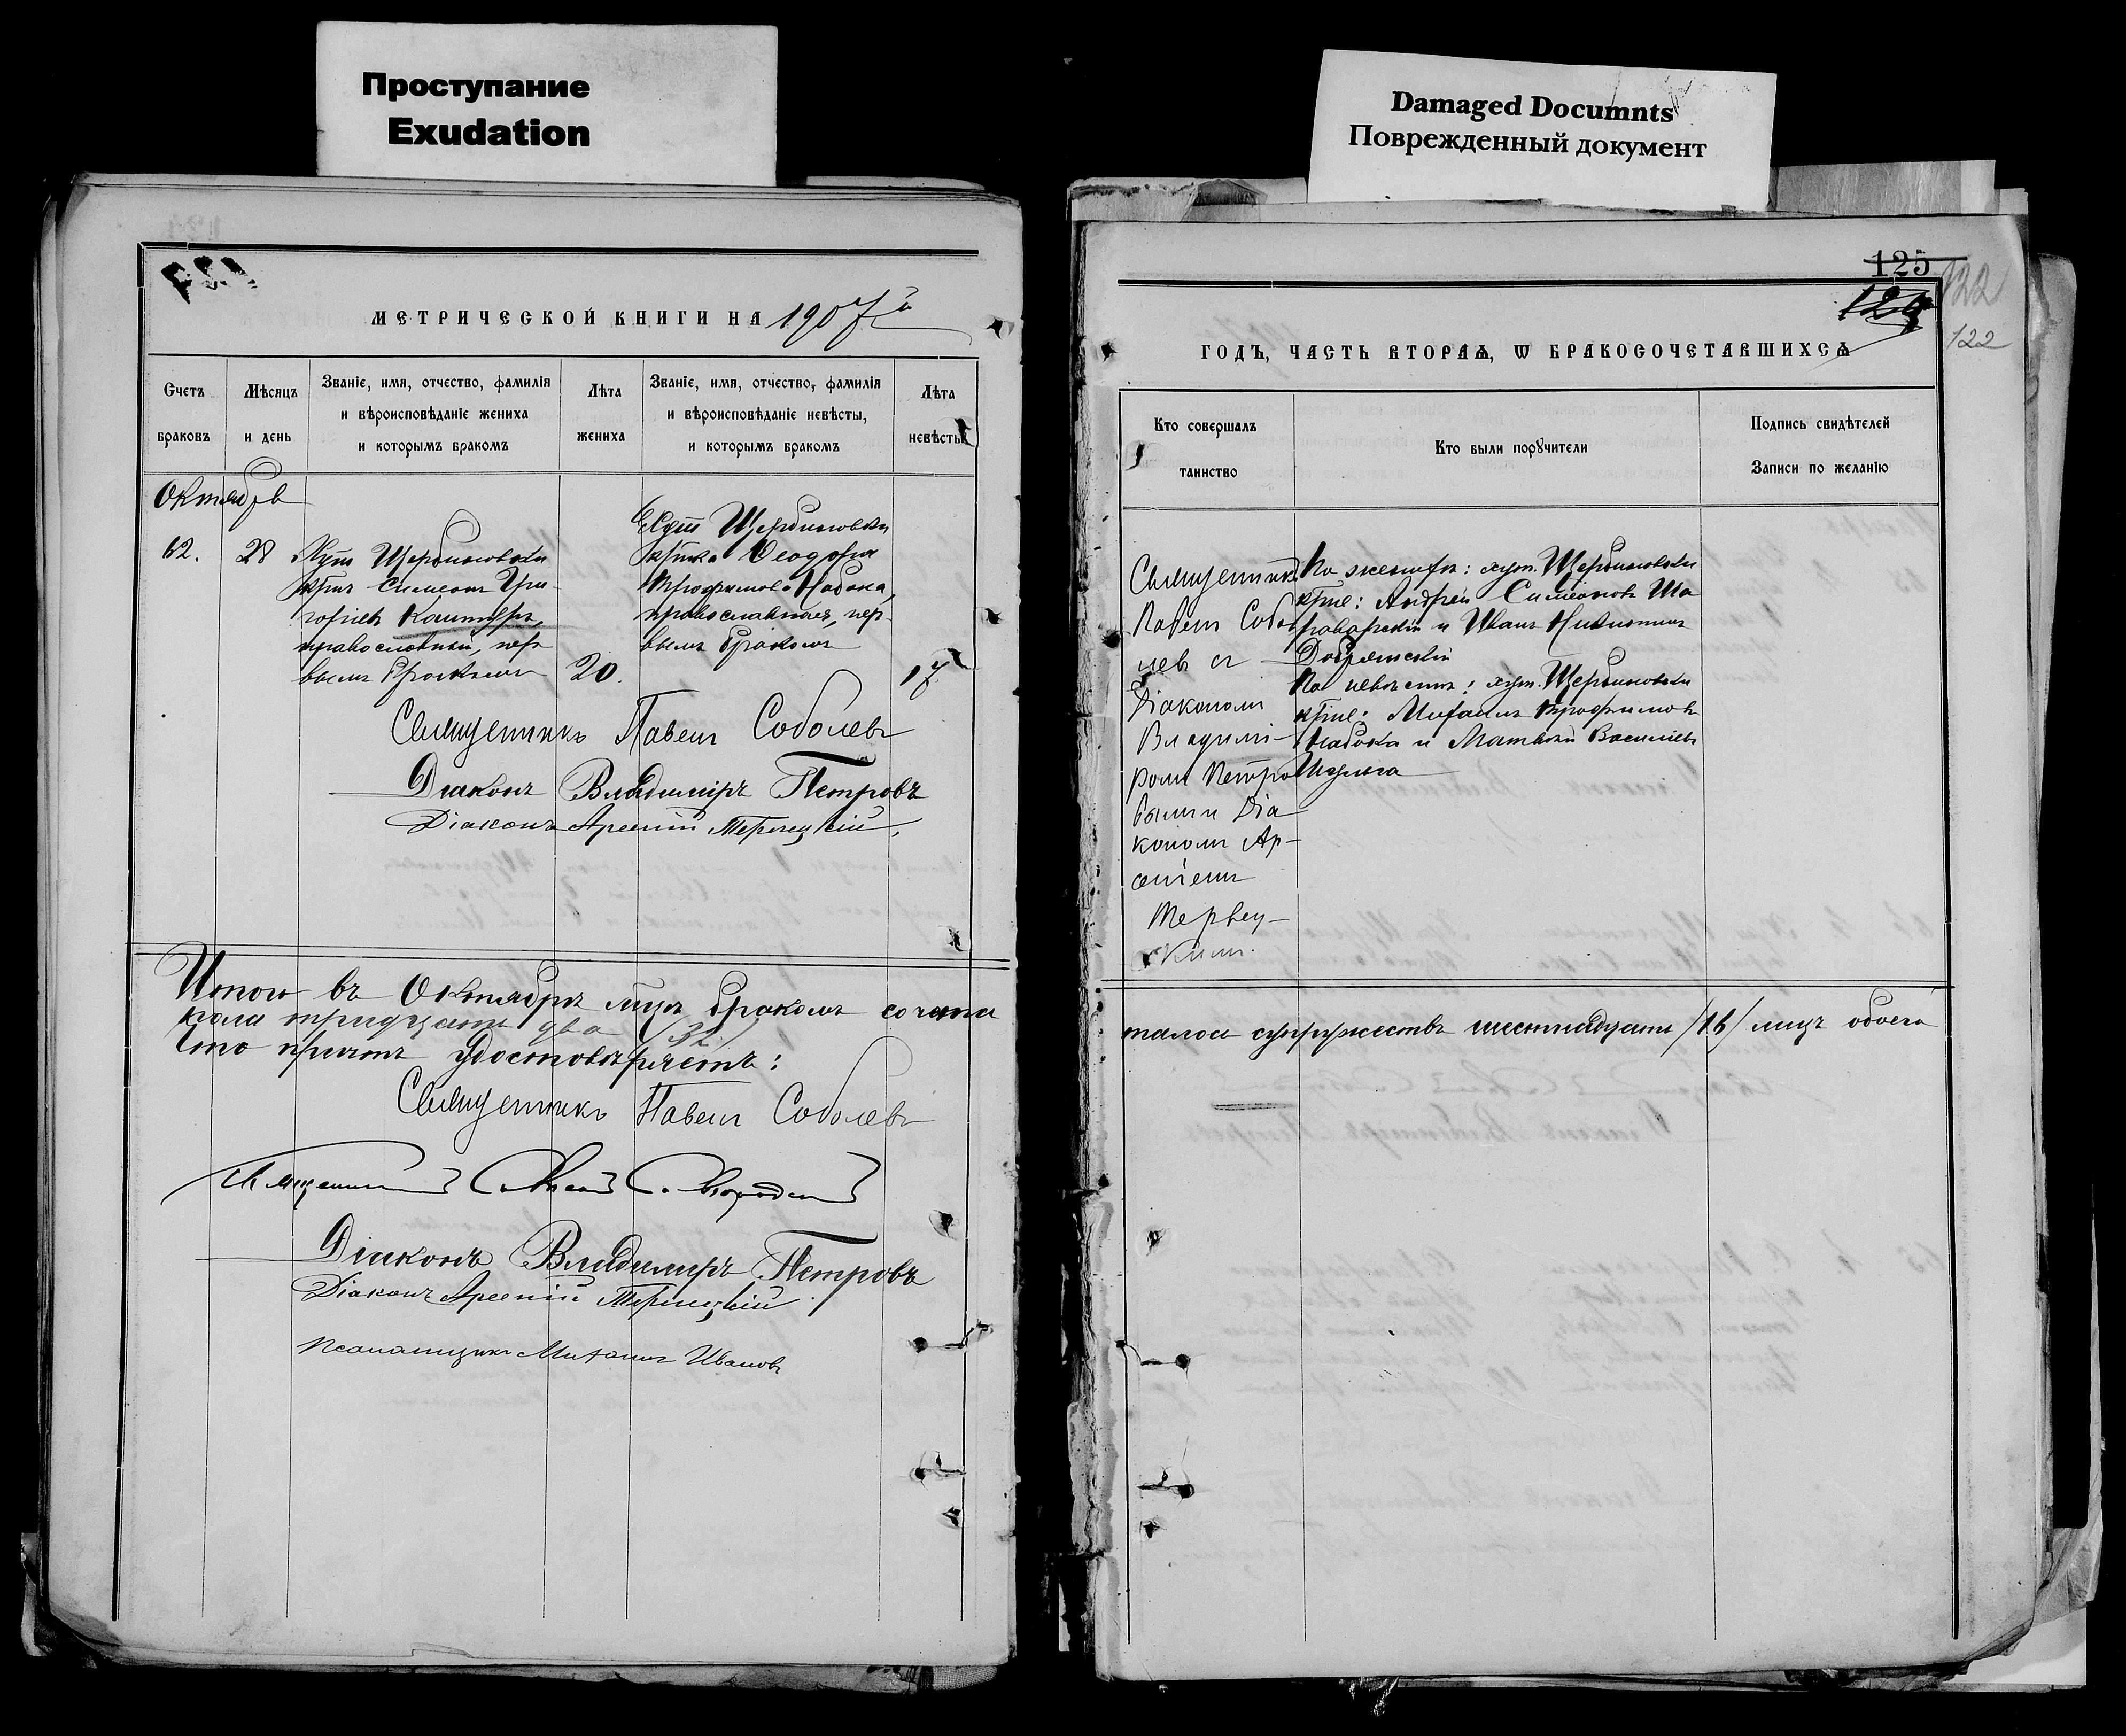 Проступание
Exudation
Damaged Documnts
Поврежденный документ
МЕТРИЧЕСКОЙ КНИГИ НА 1907й
Счетъ
браковъ
Мѣсяцъ
и день
Званіе, имя, отчество, фамилія
и вѣроисповѣданіе жениха
и которымъ бракомъ
Лѣта
жениха
Званіе, имя, отчество, фамилія
и вѣроисповѣданіе невѣсты,
и которымъ бракомъ
Лѣта
невѣсты
Октябрь
62.
28
Хут Щербиновки
кр-нъ Симеонъ Гри-
горіевъ Каштеръ,
православный, пер
вымъ бракомъ
20.
Щербиновки
Ѳеодосія
Трофимова Набока,
православная, пер-
вымъ бракомъ
17
Священникъ Павелъ Соболевъ
Діаконъ Владимиръ Петровъ
Діаконъ Арсеній Тервецкій.
Итого въ Октябрѣ м-цѣ бракомъ сочета
пола тридцати два /32/
Что причтъ удостовѣряетъ:
Священникъ Павелъ Соболевъ
Священникъ
Діаконъ Владимиръ Петровъ
Діаконъ Арсеній Тервецкій.
Псаломщикъ Михаилъ Ивановъ
125
122
122
ГОДЪ, ЧАСТЬ ВТОРАѦ, Ѡ БРАКОСОЧЕТАВШИХСѦ
Кто совершалъ
таинство
Кто были порꙋчители
Подпись свидѣтелей
Записи по желанію
Священникъ
Павелъ Собо
левъ съ
Діакономъ
Владими-
ромъ Петро
вымъ и Діа
кономъ Ар-
сеніемъ
Тервец-
кимъ.
По женихѣ: хут. Щербиновки
кр-не: Андрей Симеоновъ Ша
раварскій и Иванъ Никитинъ
Добрянскій
По невѣстѣ: хут. Щербиновки
кр-не: Михаилъ Трофимовъ
Набока и Матвѣй Васильевъ
Шульга
талось супружествъ шестнадцать /16/ лицъ обоего